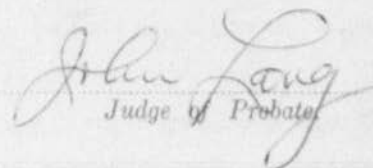 John Lang
Judge of Probate.